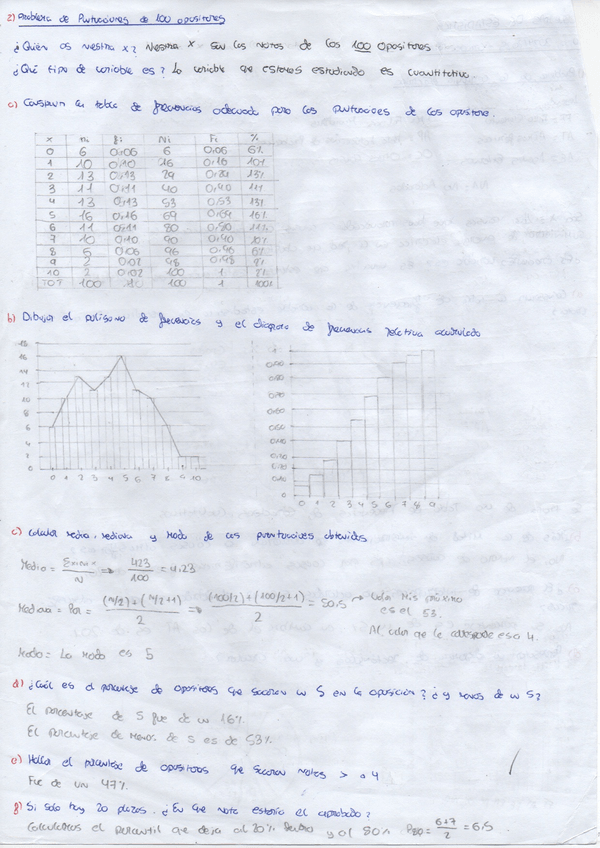 2) Problema de Puntuaciones de 100 opositores
¿Quién es nuestra x? Nuestra x son las notas de los 100 opositores
¿Qué tipo de variable es? La variable que estamos estudiando es cuantitativa.
a) Construir la tabla de frecuencias adecuada para las puntuaciones de los opositores.
x ni fi Ni Fi %
0 6 0,06 6 0,06 6%
1 10 0,10 16 0,16 10%
2 13 0,13 29 0,29 13%
3 11 0,11 40 0,40 11%
4 13 0,13 53 0,53 13%
5 16 0,16 69 0,69 16%
6 11 0,11 80 0,80 11%
7 10 0,10 90 0,90 10%
8 5 96
9 2 0,02 98 0,98 2%
10 2 0,02 100 1 2%
TOT 100 100 1 100%
b) Dibujar el polígono de frecuencias y el diagrama de frecuencias relativa acumulada
0 1 2 3 4 5 6 7 8 9 10
0 1 2 3 4 5 6 7 8 9
c) Calcular media, mediana y moda de las puntuaciones obtenidas
Media = Σxini·x / N => 423 / 100 = 4,23
Mediana = = (n/2) + (n/2+1) / 2 => (100/2) + (100/2+1) / 2 = 50,5 → valor más próximo
es el 53.
Al valor que le corresponde es a 4.
Moda = La moda es 5
d) ¿Cuál es el porcentaje de opositores que sacaron un 5 en la oposición? ¿y menos de un 5?
El porcentaje de 5 fue de un 16%
El porcentaje de menos de 5 es de 53%
e) Halla el porcentaje de opositores que sacaron notas > a 4
Fue de un 47%.
f) Si solo hay 20 plazas. ¿En qué nota estaría el aprobado?
Calculamos el percentil que deja al 20% dentro y al 80% P80 = 6+7 / 2 = 6,5